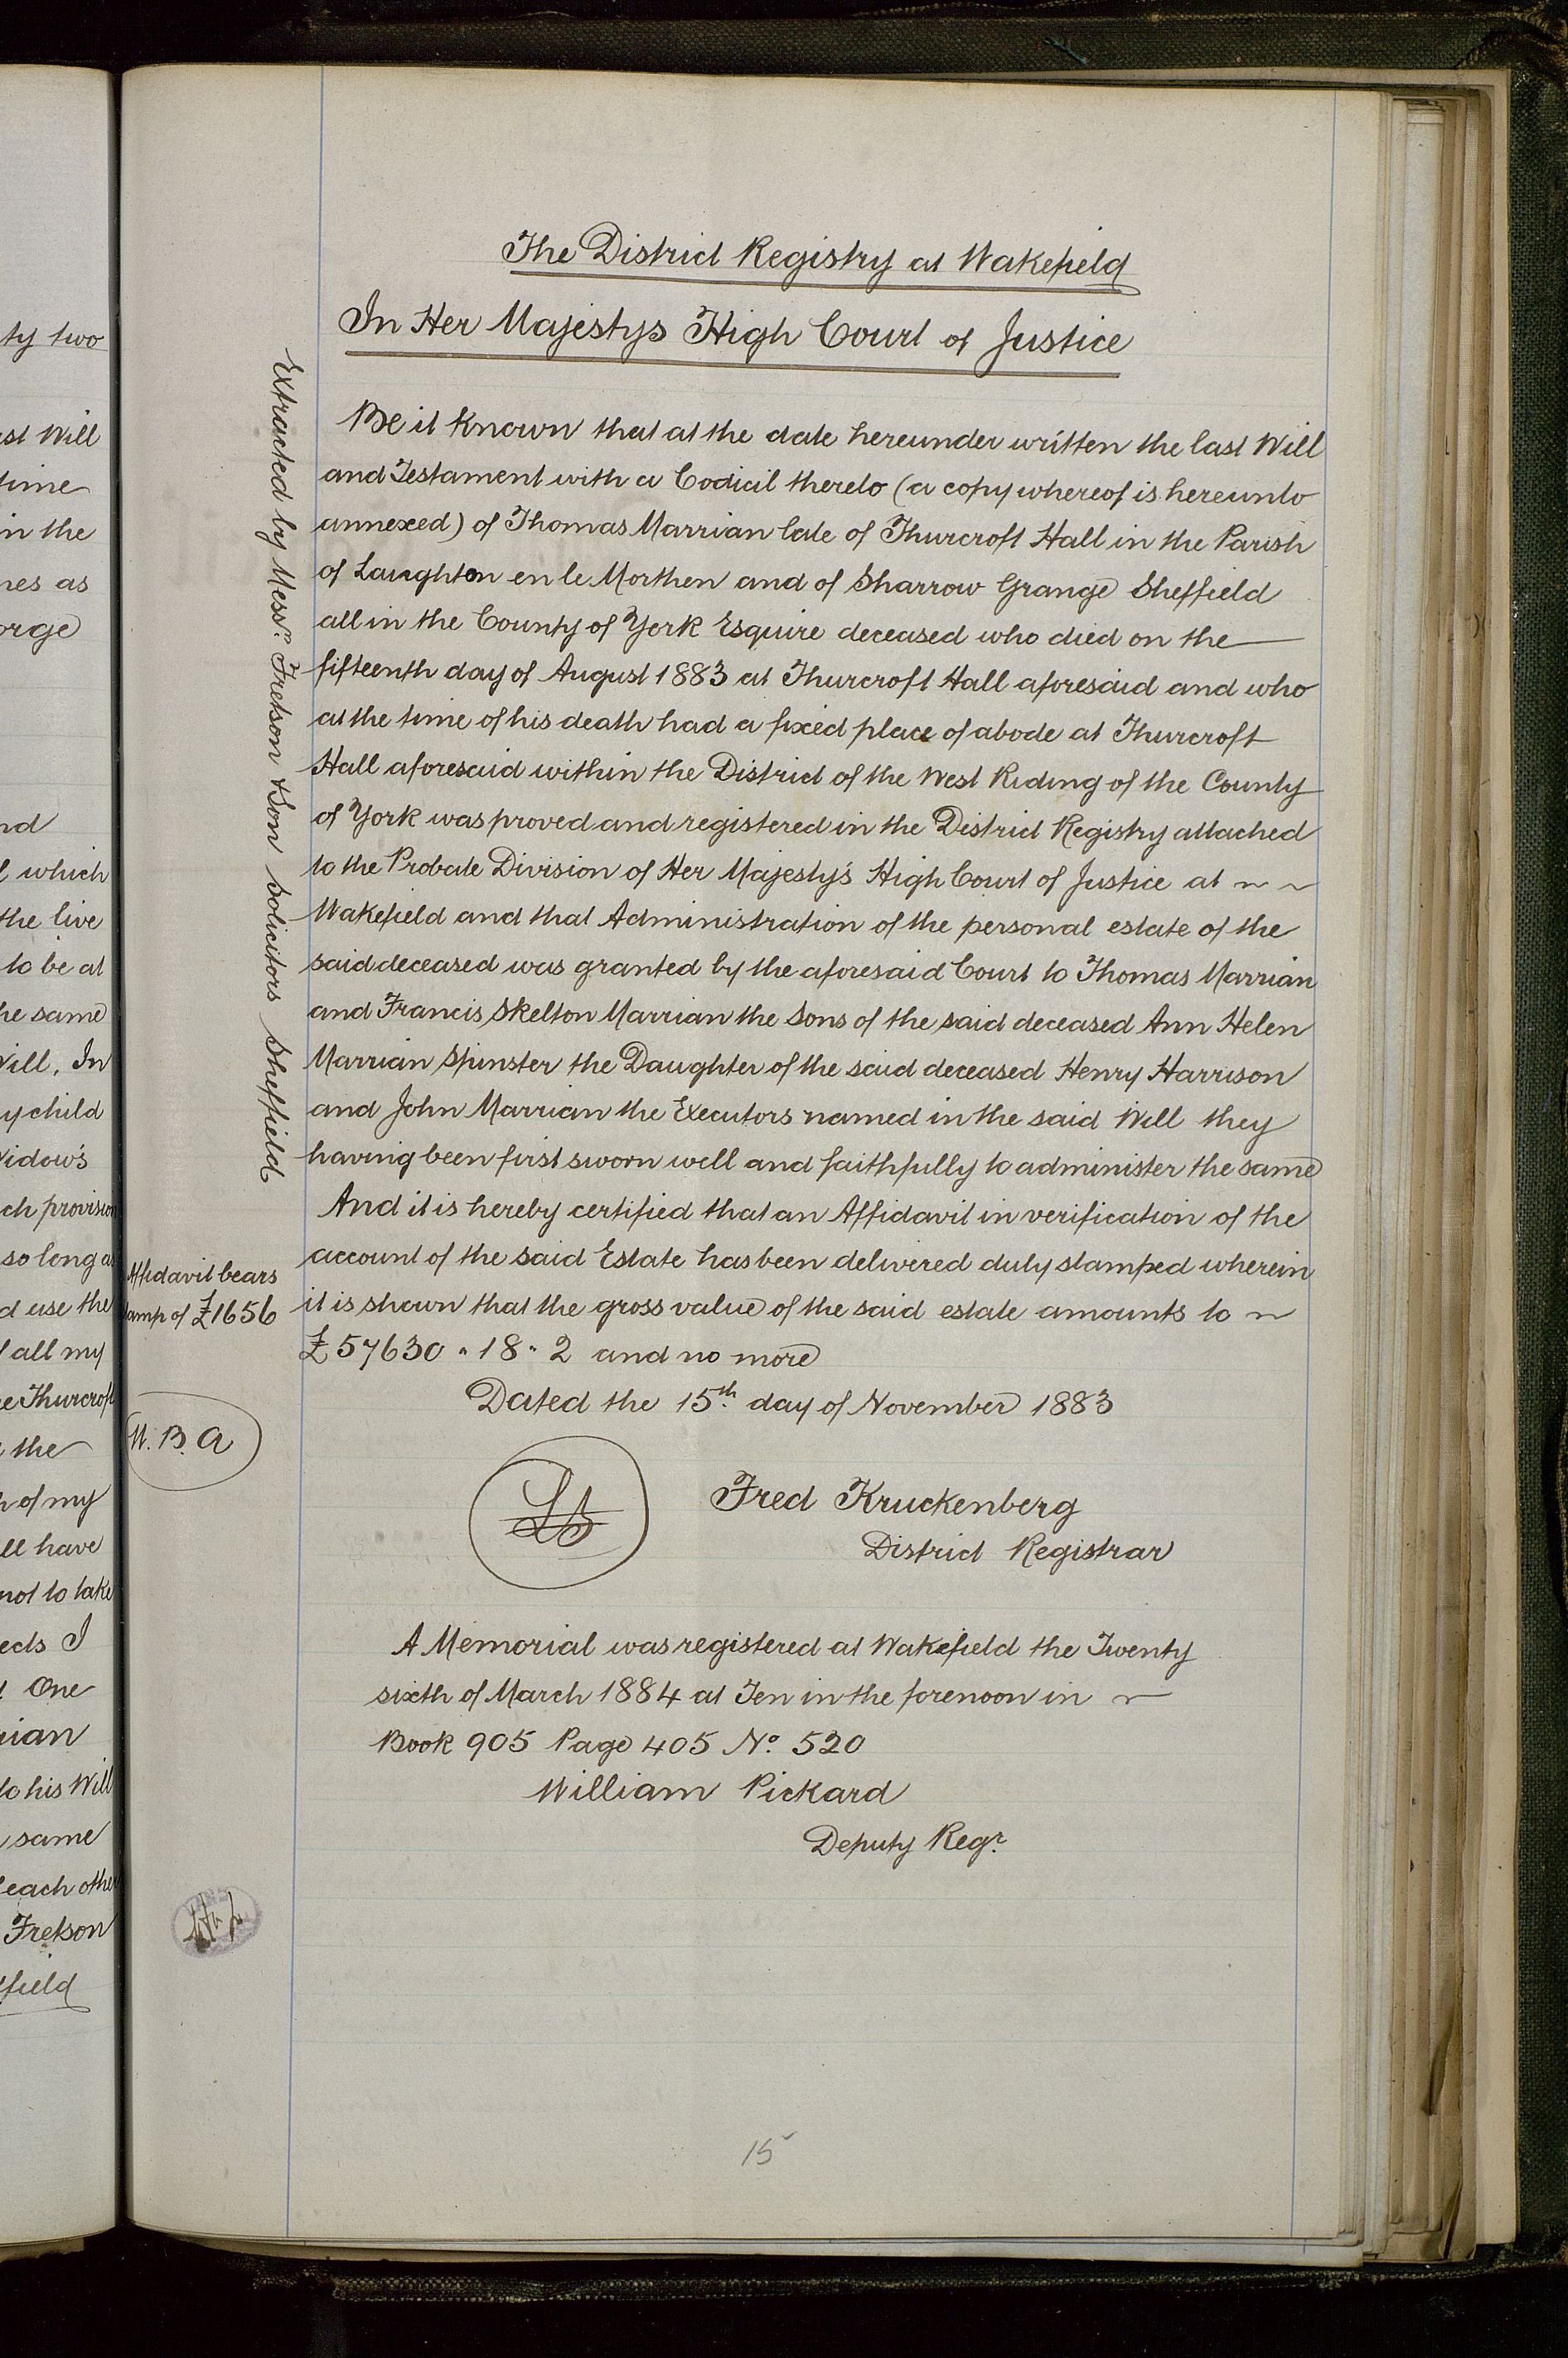 The District Registry at Wakefield
In Her Majestys High Court of Justice
Be it known that at the date hereunder written the last Will
and Testament with a Codicil thereto (a copy whereof is hereunto
annexed) of Thomas Marrian late of Thurcroft Hall in the Parish
of Laughton en le Morthen and of Sharrow Grange Sheffield
all in the County of York Esquire deceased who died on the
fifteenth day of August 1883 at Thurcroft Hall aforesaid and who
at the time of his death had a fixed place of abode at Thurcroft
Hall aforesaid within the District of the West Riding of the County
of York was proved and registered in the District Registry attached
to the Probate Division of Her Majesty's High Court of Justice at
Wakefield and that Administration of the personal estate of the
said deceased was granted by the aforesaid Court to Thomas Marrian
and Francis Skelton Marrian the Sons of the said deceased Ann Helen
Marrian Spinster the Daughter of the said deceased Henry Harrison
and John Marrian the Executors named in the said Will they
having been first sworn well and faithfully to administer the same
And it is hereby certified that an Affidavit in verification of the
account of the said Estate has been delivered duly stamped wherein
it is shewn that the gross value of the said estate amounts to
£57630 " 18 " 2 and no more
Dated the 15th. day of November 1883
LS
Fred Kruckenberg
District Registrar
A Memorial was registered at Wakefield the Twenty
sixth of March 1884 at Ten in the forenoon in
Book 905 Page 405 No. 520
William Pickard
Deputy Regr.
15
Extracted by Messrs. Fretson & Son Solicitors Sheffield
Affidavit bears
stamp of £1656
W. B. A
ty two
st Will
time
in the
nes as
orge
nd
l which
the live
to be at
he same
Will, In
y child
Widow's
ch provision
so long as
d use the
all my
e Thurcroft
the
h of my
ll have
not to take
ects I
One
rian
to his Will
same
each other
Fretson
ffield